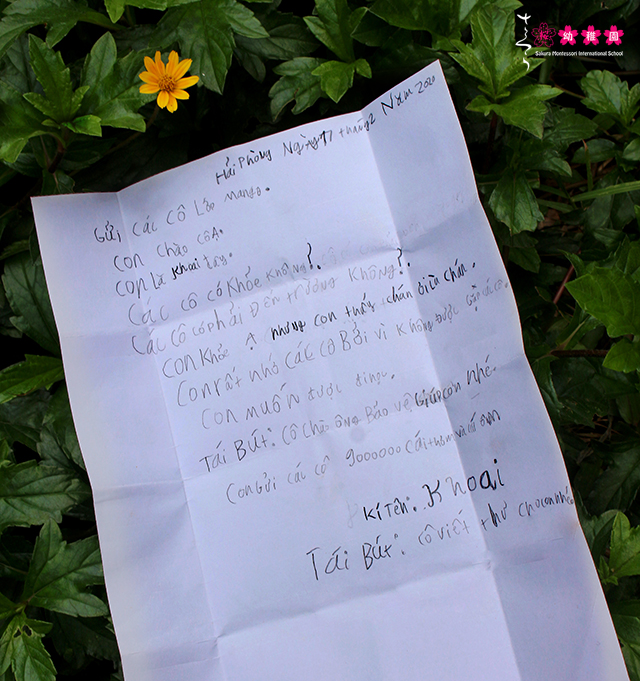 さくら 幼稚園
Sakura Montessori International School
Hải Phòng Ngày 17 tháng 2 Năm 2020
Gửi Các Cô Lớp Mango.
Con Chào CôẠ.
Con Là Khoai tây.
Các Cô có Khỏe Không?.
Các Cô có phải Đến trường Không?.
Con Khỏe Ạ nhưng con thấy chán
Con rất nhớ Các Cô Bởi vì Không được gặp các cô.
Con muốn được
Tái Bút: Cô Chào ông Bảo vệ Giúp con nhé.
Con Gửi các cô 9000000 cái thơm và cái ôm
Kí Tên: Khoai
Tái Bút: Cô viết thư cho con nhé